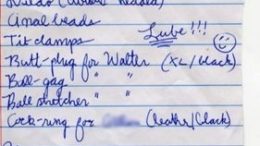 Anal beads
Tit clamps
Lube!!!
Butt-plug for Walter (XL/black)
Ball-gag " "
Ball stretcher " "
Cock-ring for (leather/black)